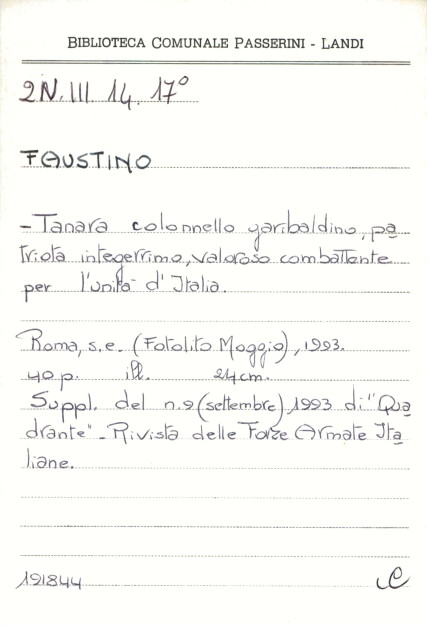 BIBLIOTECA COMUNALE PASSERINI - LANDI
2N.III 14. 17°
FAUSTINO
-Tanara colonnello garibaldino, pa
triota integerrimo, valoroso combattente
per l'unità d'Italia.
Roma, s.e. (Fotolito Moggio), 1993.
40 p. ill. 24 cm.
Suppl. del n.9 (settembre) 1993 di "Qua
drante" - Rivista delle Forze Armate Ita
liane.
191844